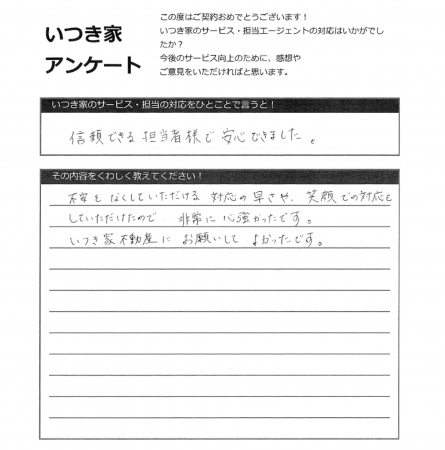 いつき家
アンケート
この度はご契約おめでとうございます！
いつき家のサービス・担当エージェントの対応はいかがでし
たか？
今後のサービス向上のために、感想や
ご意見をいただければと思います。
いつき家のサービス・担当の対応をひとことで言うと！
信頼できる担当者様で安心できました。
その内容をくわしく教えてください！
不安をなくしていただける対応の早さや、笑顔での対応を
していただけたので、非常に心強かったです。
いつき家不動産にお願いしてよかったです。